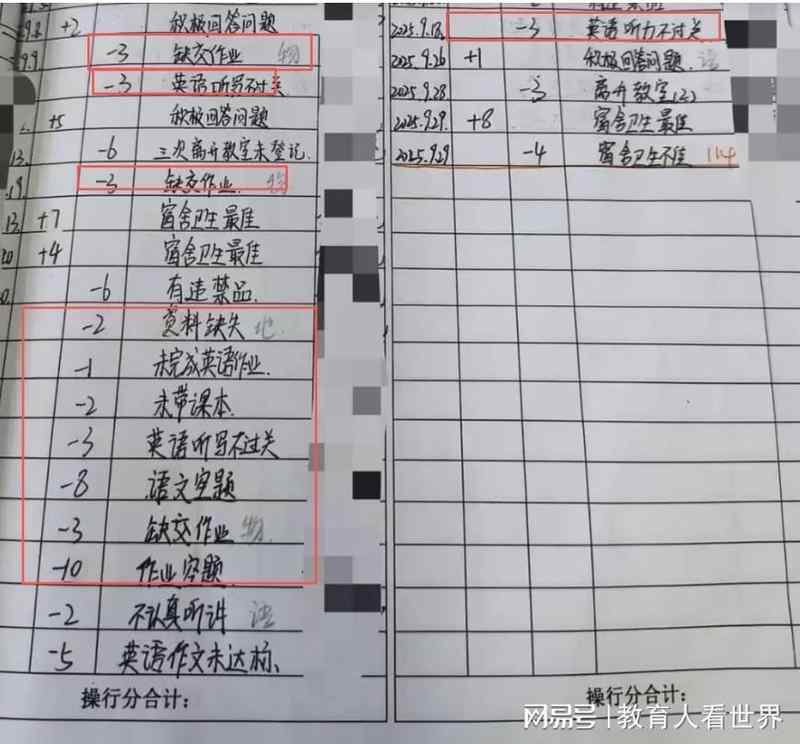 +2 积极回答问题
-3 缺交作业 物
-3 英语听写不过关
+5 积极回答问题
-6 三次离开教室未登记.
-3 缺交作业.
+7 宿舍卫生最佳
+4 宿舍卫生最佳
-6 有违禁品.
-2 资料缺失 地.
-1 未完成英语作业.
-2 未带课本.
-3 英语听写不过关
-8 语文空题
-3 缺交作业 物.
-10 作业空题.
-2 不认真听讲
-5 英语作文未达标、
操行分合计：
2025.9.18. -3 英语听力不过关
2025.9.26 +1 积极回答问题.
2025.9.28 -3 离开教室(2)
2025.9.29. +8 宿舍卫生最佳
2025.9.29 -4 宿舍卫生不佳 114
操行分合计：
网易号 | 教育人看世界